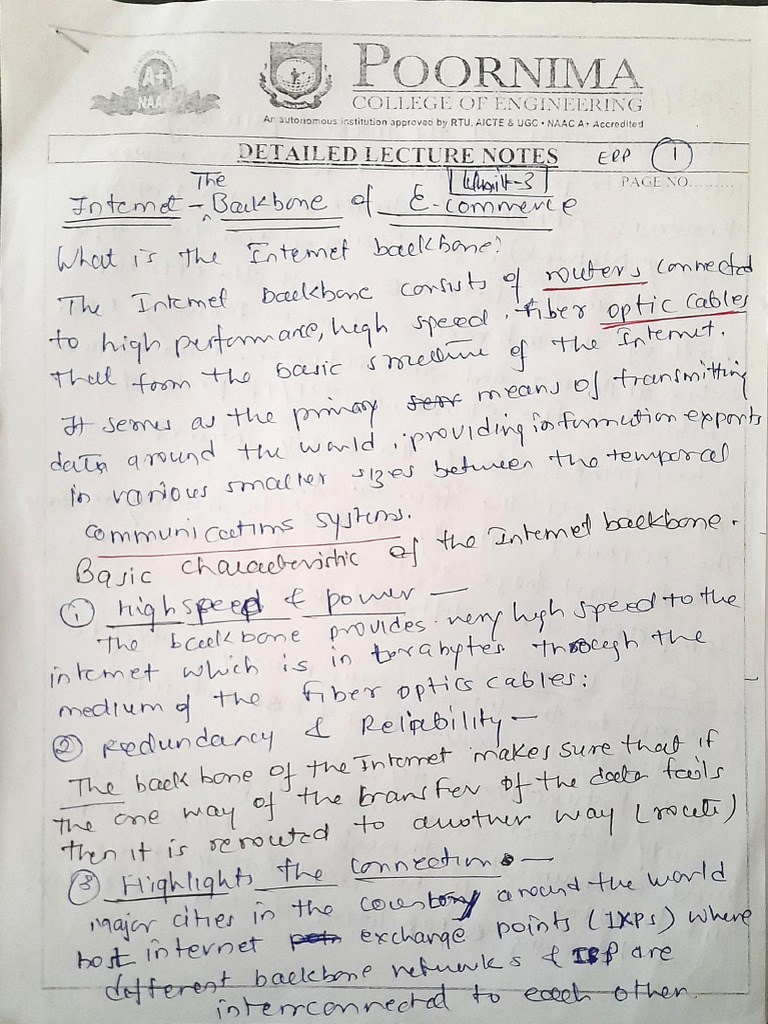 A+
NAAC
POORNIMA
COLLEGE OF ENGINEERING
An autonomous institution approved by RTU, AICTE & UGC • NAAC A+ Accredited
DETAILED LECTURE NOTES ERP 1
Unit-3
PAGE NO.........
Internet - The Backbone of E-commerce
What is the Internet backbone?
The Internet backbone consists of routers connected
to high performance, high speed, fiber optic cables
that form the basic structure of the Internet.
It serves as the primary means of transmitting
data around the world, providing information exports
in various smaller sizes between the temporal
communications systems.
Basic characteristic of the Internet backbone.
① high speed & power —
The backbone provides very high speed to the
internet which is in terabytes through the
medium of the fiber optics cables:
② Redundancy & Reliability —
The backbone of the Internet makes sure that if
the one way of the transfer of the data fails
then it is rerouted to another way (route)
③ Highlights the connection —
Major cities in the country around the world
host internet exchange points (IXPs) where
different backbone networks & ISP are
interconnected to each other.